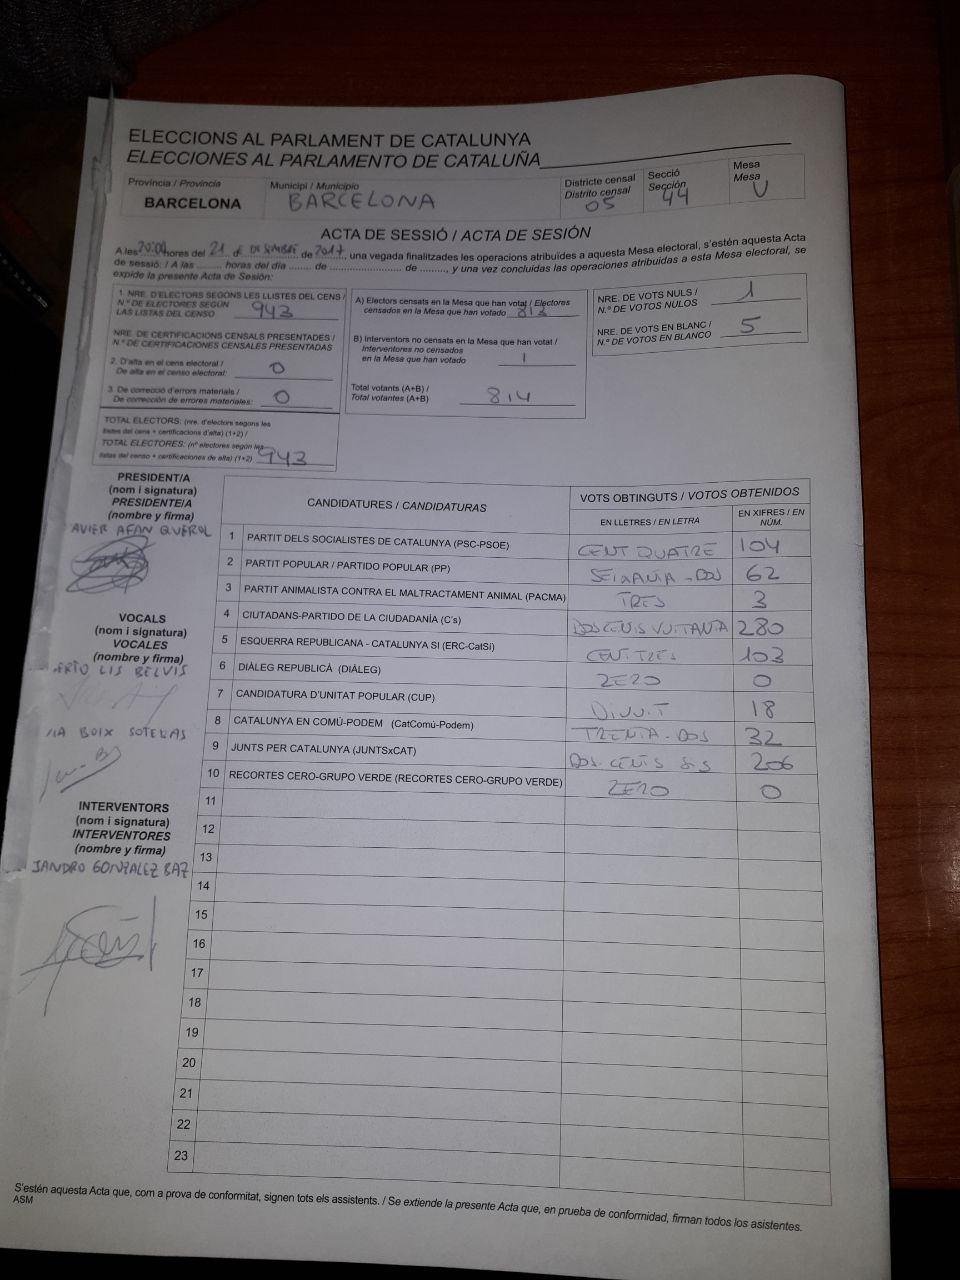 ELECCIONS AL PARLAMENT DE CATALUNYA
ELECCIONES AL PARLAMENTO DE CATALUÑA
Provincia / Provincia
BARCELONA
Municipi / Municipio
BARCELONA
Districte censal
Distrito censal
05
Secció
Sección
44
Mesa
Mesa
U
ACTA DE SESSIÓ / ACTA DE SESIÓN
A les 20:00 hores del 21 de DESEMBRE de 2017, una vegada finalitzades les operacions atribuïdes a aquesta Mesa electoral, s'estén aquesta Acta
de sessió: / A las ........ horas del día ....... de ........................ de ........, y una vez concluidas las operaciones atribuidas a esta Mesa electoral, se
expide la presente Acta de Sesión:
1. NRE. D'ELECTORS SEGONS LES LLISTES DEL CENS /
N.º DE ELECTORES SEGÚN
LAS LISTAS DEL CENSO 943
NRE. DE CERTIFICACIONS CENSALS PRESENTADES /
N.º DE CERTIFICACIONES CENSALES PRESENTADAS
2. D'alta en el cens electoral /
De alta en el censo electoral: 0
3. De correcció d'errors materials /
De corrección de errores materiales: 0
TOTAL ELECTORS: (nre. d'electors segons les
llistes del cens + certificacions d'alta) (1+2) /
TOTAL ELECTORES: (nº electores según las
listas del censo + certificaciones de alta) (1+2) 943
A) Electors censats en la Mesa que han votat / Electores
censados en la Mesa que han votado 813
B) Interventors no censats en la Mesa que han votat /
Interventores no censados
en la Mesa que han votado 1
Total votants (A+B) /
Total votantes (A+B) 814
NRE. DE VOTS NULS /
N.º DE VOTOS NULOS 1
NRE. DE VOTS EN BLANC /
N.º DE VOTOS EN BLANCO 5
PRESIDENT/A
(nom i signatura)
PRESIDENTE/A
(nombre y firma)
AVIER AFAN QUEROL
VOCALS
(nom i signatura)
VOCALES
(nombre y firma)
LIS BELVIS
BOIX SOTERAS
INTERVENTORS
(nom i signatura)
INTERVENTORES
(nombre y firma)
JANDRO GONZALEZ BAZ
CANDIDATURES / CANDIDATURAS
VOTS OBTINGUTS / VOTOS OBTENIDOS
EN LLETRES / EN LETRA
EN XIFRES / EN
NÚM.
1 PARTIT DELS SOCIALISTES DE CATALUNYA (PSC-PSOE) CENT QUATRE 104
2 PARTIT POPULAR / PARTIDO POPULAR (PP) SEIXANTA-DOS 62
3 PARTIT ANIMALISTA CONTRA EL MALTRACTAMENT ANIMAL (PACMA) TRES 3
4 CIUTADANS-PARTIDO DE LA CIUDADANÍA (C's) DOSCENTS VUITANTA 280
5 ESQUERRA REPUBLICANA - CATALUNYA SI (ERC-CatSí) CENT TRES 103
6 DIÀLEG REPUBLICÀ (DIÀLEG) ZERO 0
7 CANDIDATURA D'UNITAT POPULAR (CUP) DIVUIT 18
8 CATALUNYA EN COMÚ-PODEM (CatComú-Podem) TRENTA-DOS 32
9 JUNTS PER CATALUNYA (JUNTSxCAT) DOS-CENTS SIS 206
10 RECORTES CERO-GRUPO VERDE (RECORTES CERO-GRUPO VERDE) ZERO 0
11
12
13
14
15
16
17
18
19
20
21
22
23
S'estén aquesta Acta que, com a prova de conformitat, signen tots els assistents. / Se extiende la presente Acta que, en prueba de conformidad, firman todos los asistentes.
ASM